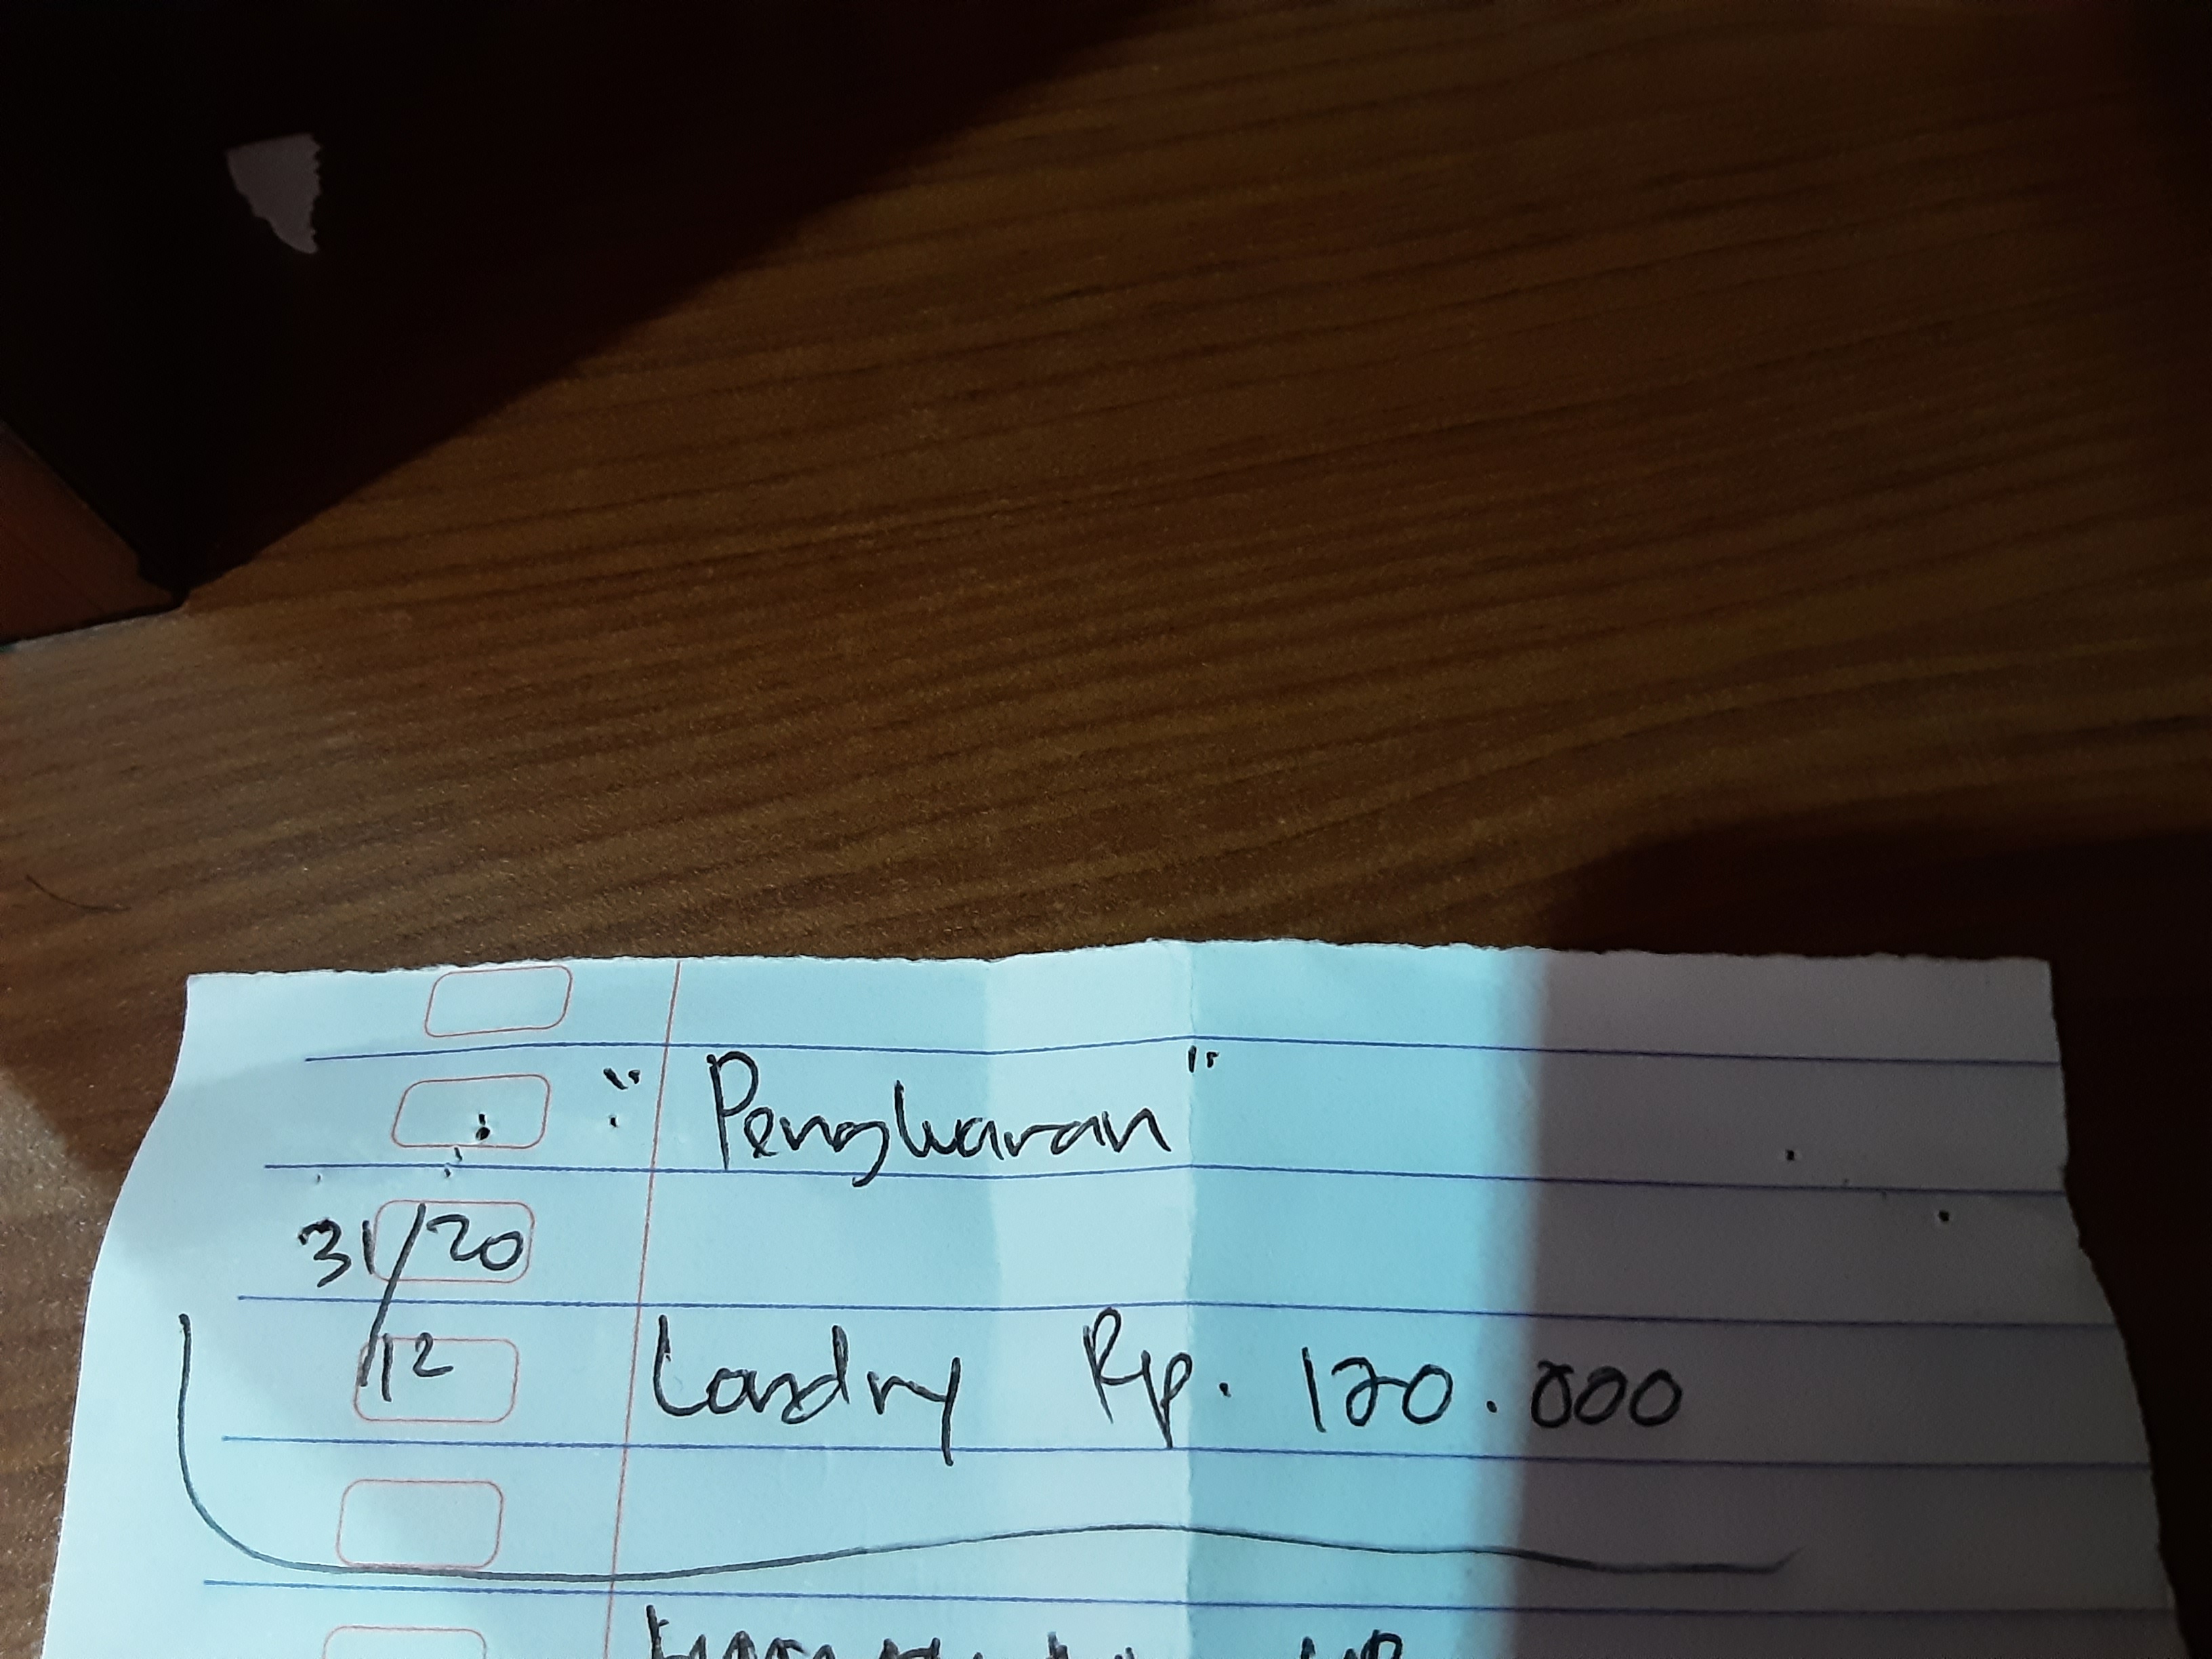 " Pengluaran "
31/20
12 Landry Rp. 120.000